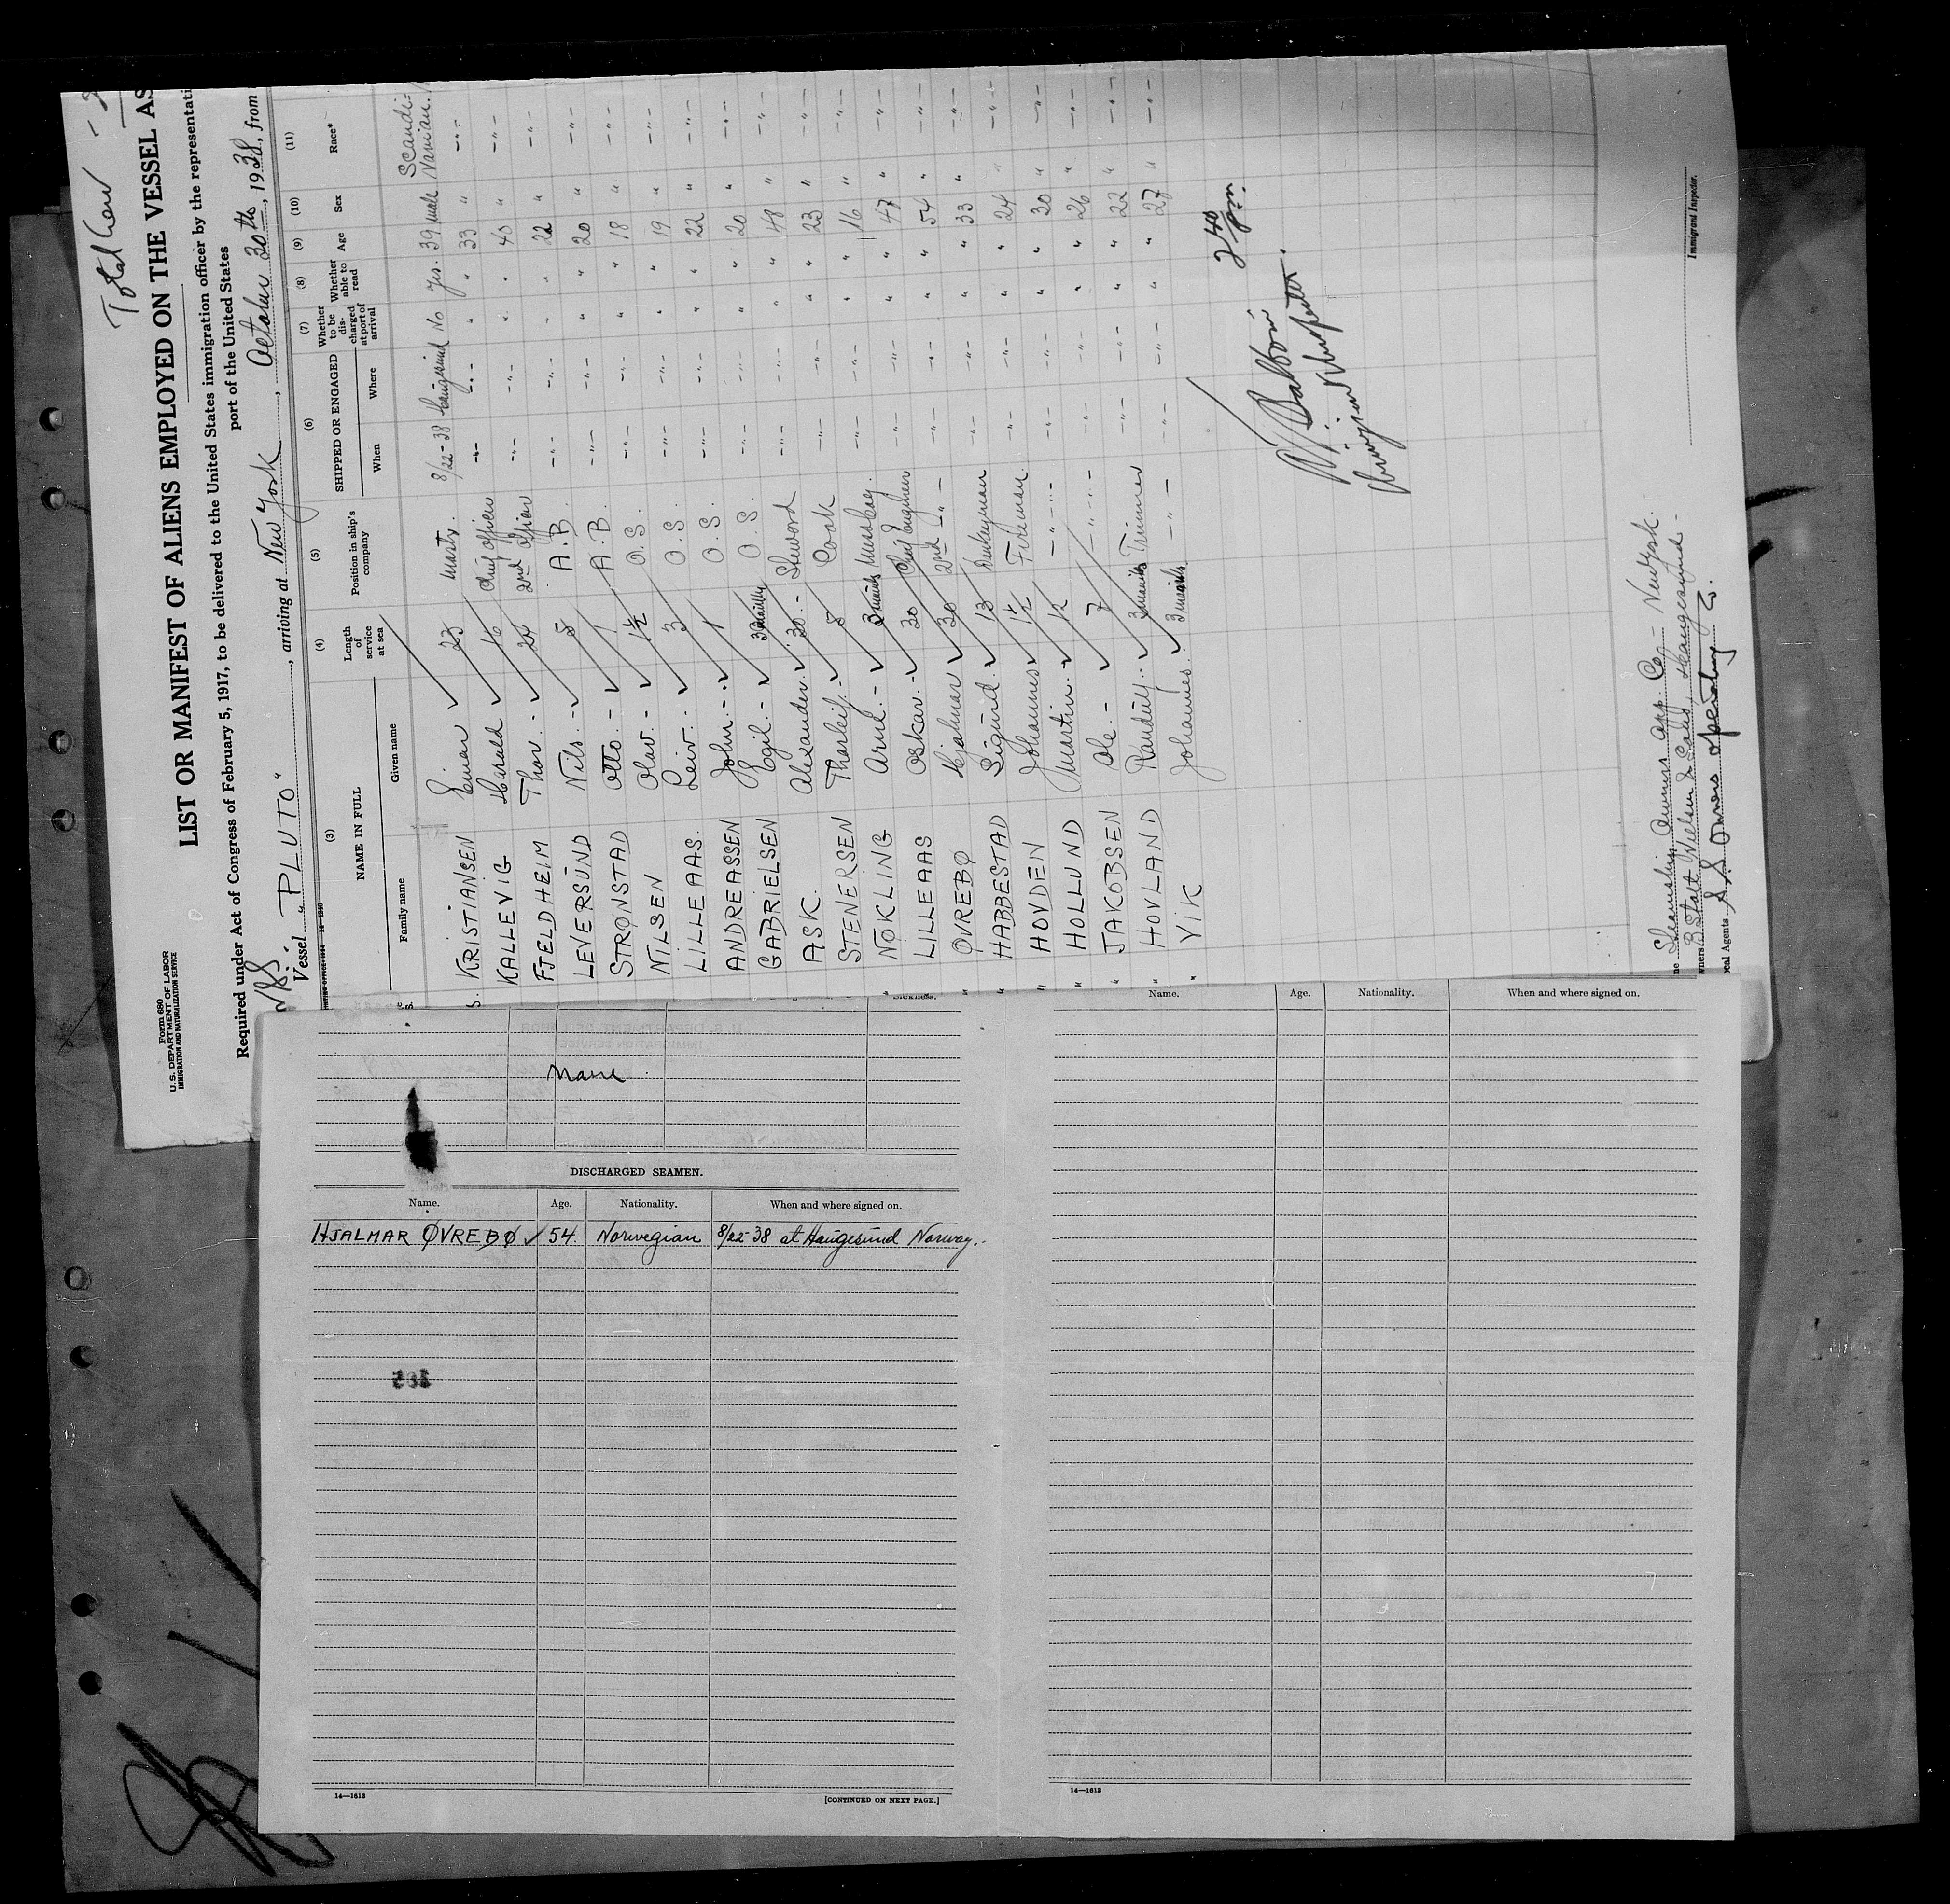 Total Crew
Form 680
U.S. DEPARTMENT OF LABOR
IMMIGRATION AND NATURALIZATION SERVICE
LIST OR MANIFEST OF ALIENS EMPLOYED ON THE VESSEL AS
Required under Act of Congress of February 5, 1917, to be delivered to the United States immigration officer by the representati
port of the United States
Vessel "PLUTO", arriving at New York, October 30th, 1938, from
(3) (4) (5) (6) (7) (8) (9) (10) (11)
NAME IN FULL Length of service at sea Position in ship's company SHIPPED OR ENGAGED Whether to be discharged at port of arrival Whether able to read Age Sex Race*
Family name Given name When Where
KRISTIANSEN Einar 23 Mastr. 8/22-38 Haugesund No Yes. 39 male Scandinavian.
KALLEVIG Harald 16 Chief officer -"- -"- " " 33 " -"-
FJELDHEIM Thor.- 24 2nd officer -"- -"- " " 40 " -"-
LEVERSUND Nils.- 5 A.B. -"- -"- " " 22 " -"-
STRØNSTAD Otto.- 1 A.B. -"- -"- " " 20 " -"-
NILSEN Olav.- 1½ O.S. -"- -"- " " 18 " -"-
LILLEAAS. Leiv.- 3 O.S. -"- -"- " " 19 " -"-
ANDREASSEN John.- 1 O.S. -"- -"- " " 22 " -"-
GABRIELSEN Egil.- O.S. -"- -"- " " 20 " -"-
ASK. Alexander.- 30.- Steword -"- -"- " " 48 " -"-
STENERSEN Thorleif.- 5 Cook -"- -"- " " 23 " -"-
NØKLING Arne.- 3 Messboy. -"- -"- " " 16 " -"-
LILLEAAS Oskar.- 30 Chief Engineer -"- -"- " " 47 " -"-
ØVREBØ Hjalmar 30 2nd -"- -"- -"- " " 54 " -"-
HABBESTAD Sigurd.- 13 Donkeyman -"- -"- " " 33 " -"-
HOVDEN Johannes 1½ Fireman. -"- -"- " " 24 " -"-
HOLLUND Martin.- 1½ -"- -"- -"- " " 30 " -"-
JAKOBSEN Ole.- 7 -"- -"- -"- " " 26 " -"-
HOVLAND 3 Trimmer -"- -"- " " 22 " -"-
VIK Johannes.- 3 -"- -"- -"- " " 27 " -"-
2 40 pm.
Immigrant Inspector
Steamship Owners Opp. Co.- New York.-
B. Stolt Nielsen & Sons, Haugesund.-
cal Agents S.S. Owners Operating Co.
Immigrant Inspector.
Sickness.
None
DISCHARGED SEAMEN.
Name. Age. Nationality. When and where signed on.
HJALMAR ØVREBØ 54. Norwegian 8/22-38 at Haugesund Norway.-
14—1613
[CONTINUED ON NEXT PAGE.]
Name. Age. Nationality. When and where signed on.
14—1613